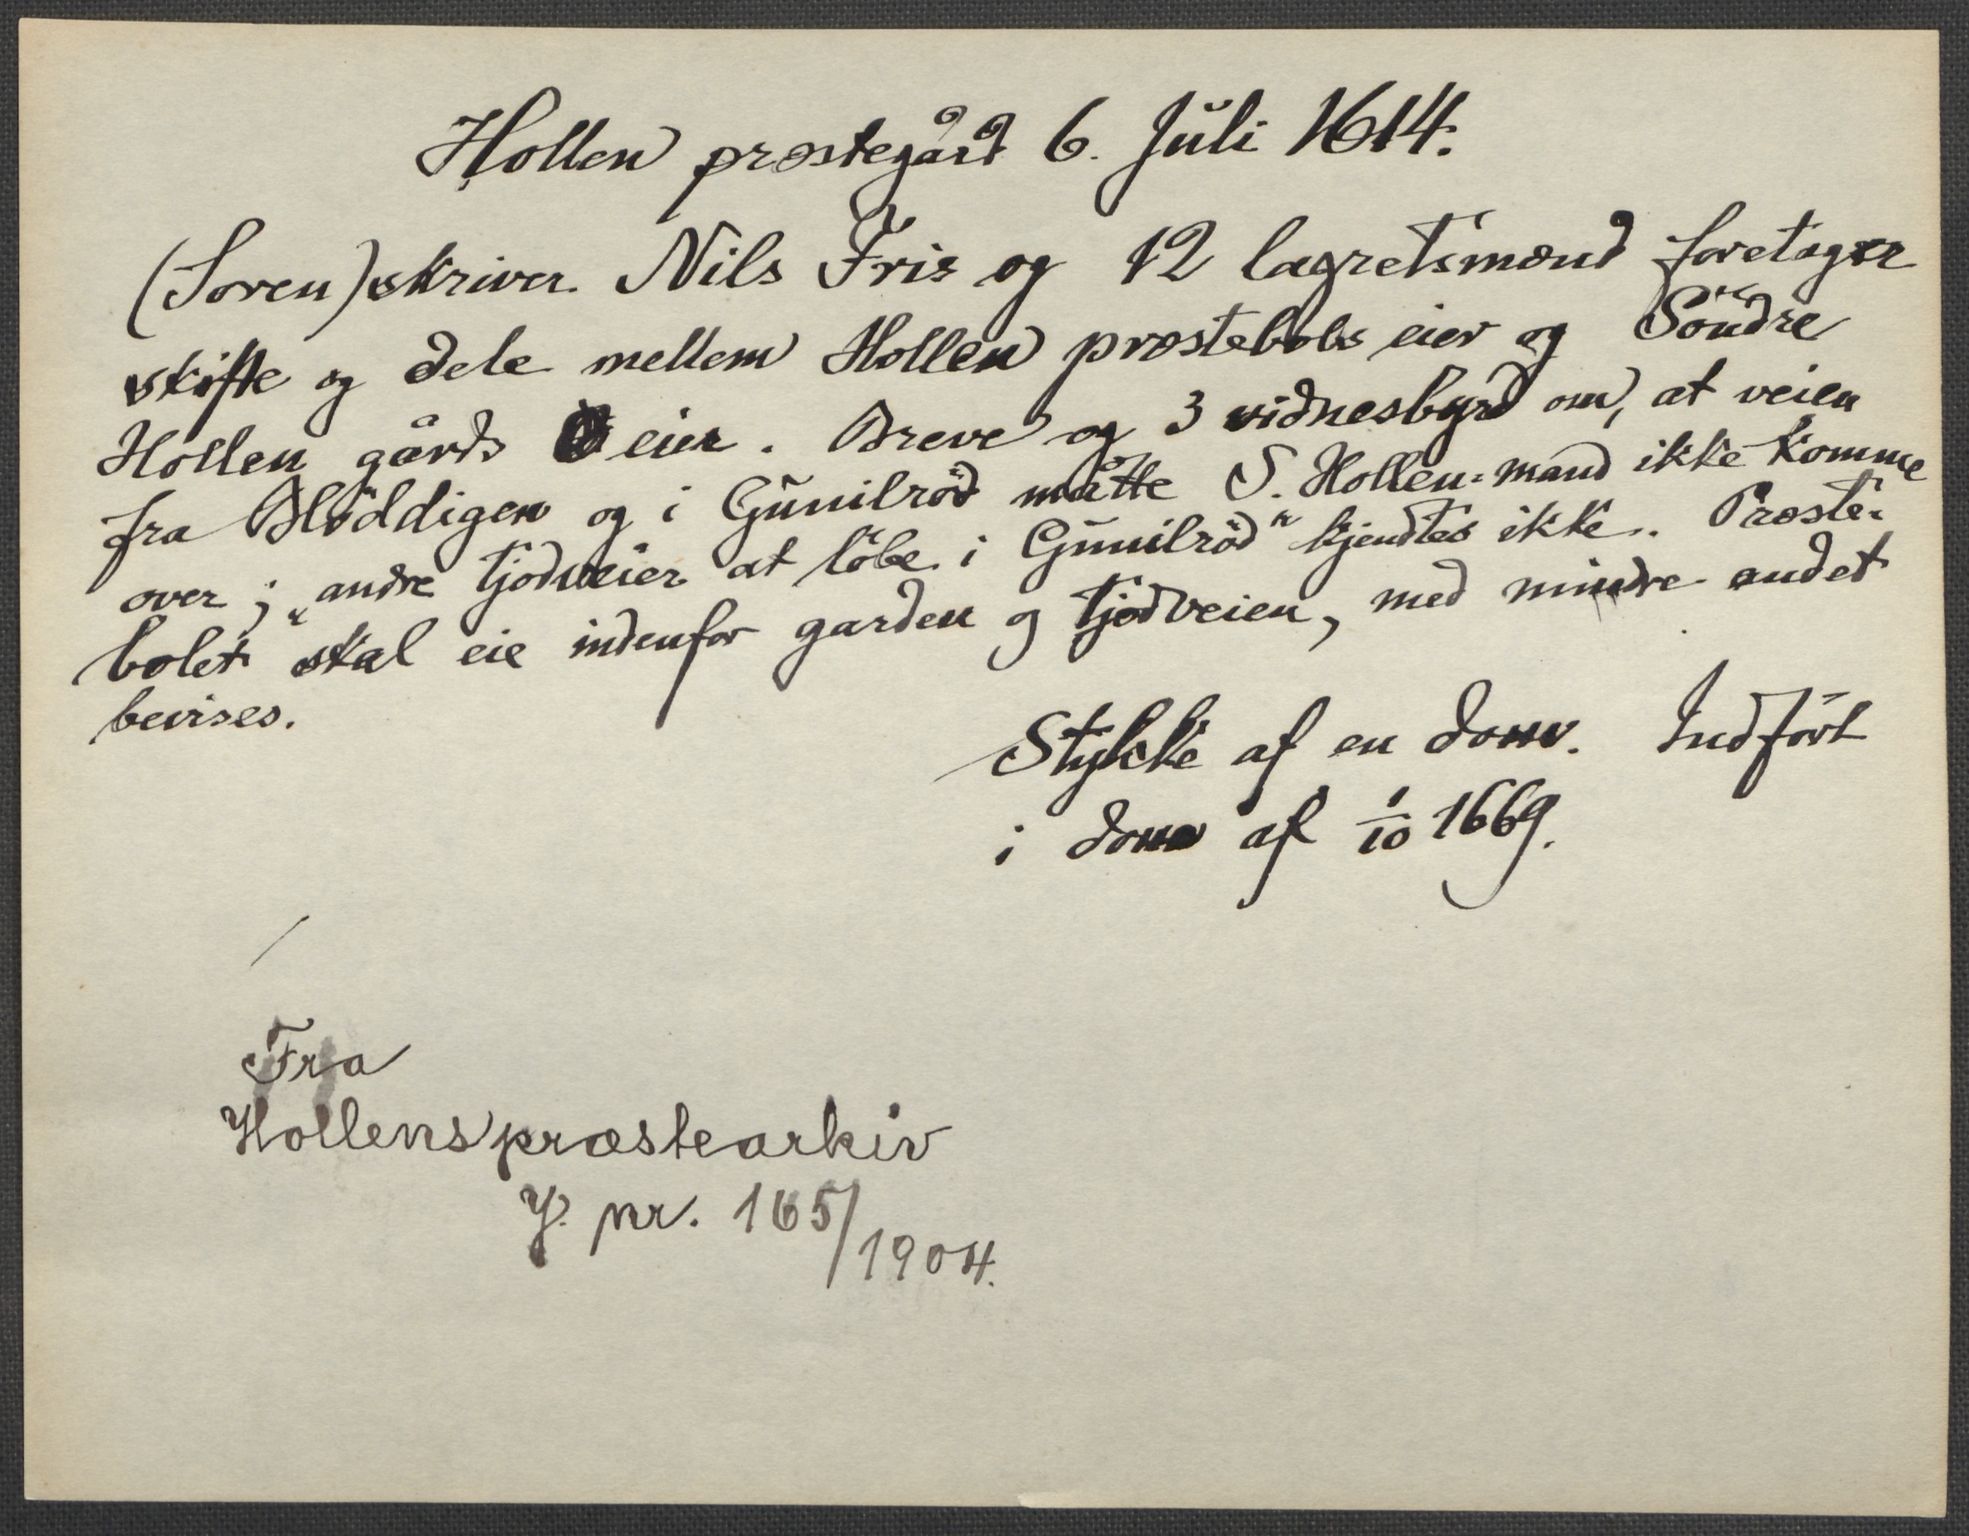 Hollen præstegård 6. Juli 1614.
(Soren)skriver Nils Fris og 12 lagretsmænd foretager
skifte og dele mellem Hollen præstebols eier og Söndre
Hollen gårds eier. Breve og 3 vidnesbyrd om, at veien
fra Höddigen og i Gunilröd måtte S. Hollen-mand ikke komme
over; "andre tjodveier at löbe i Gunilröd" kjendtes ikke. Præste-
bolet skal eie indenfor garden og tjodveien, med mindre andet
bevises.
Stykke af en dom. Indfört
i dom af 1/10 1669.
Fra
Hollens præstearkiv
J. nr. 165/1904.